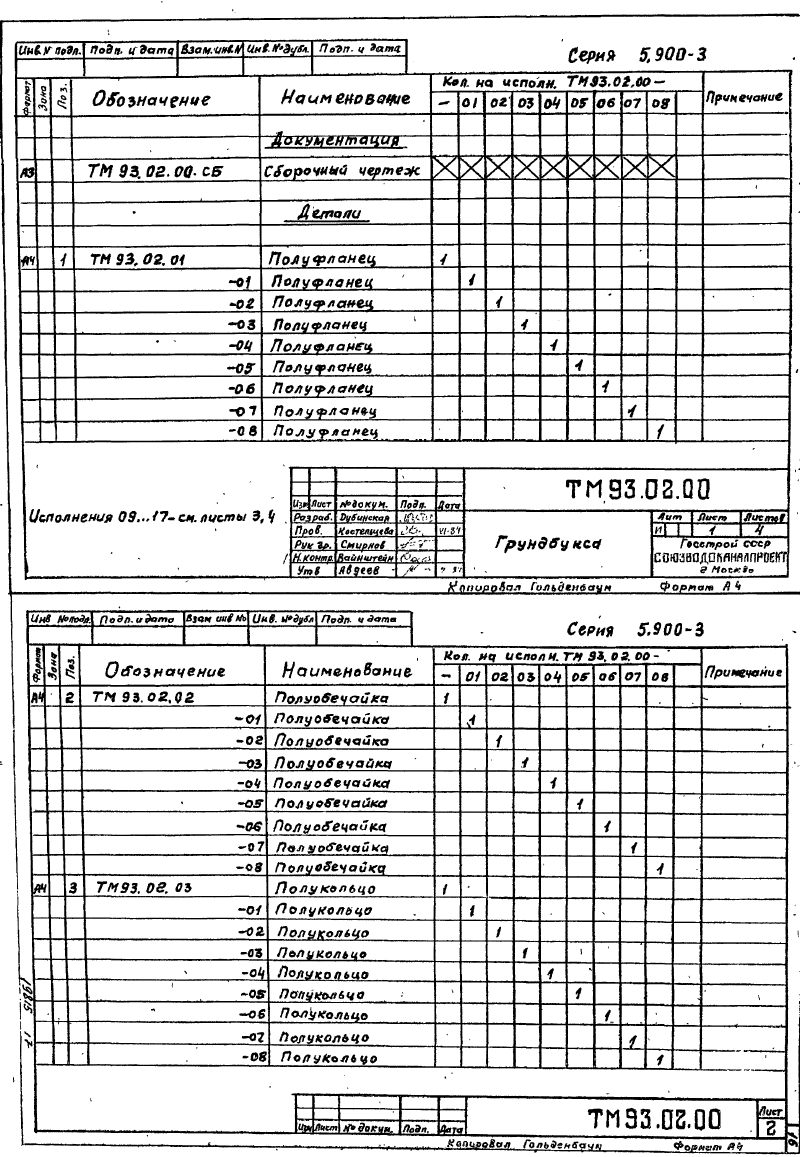 Инв.N подл. Подп. и дата Взам.инв.N Инв.№дубл. Подп. и дата
Серия 5.900-3
Формат Зона Поз. Обозначение Наименование Кол. на исполн. ТМ93.02.00 — Примечание
- 01 02 03 04 05 06 07 08
Документация
А3 ТМ 93.02.00.СБ Сборочный чертеж
Детали
А4 1 ТМ 93.02.01 Полуфланец 1
-01 Полуфланец 1
-02 Полуфланец 1
-03 Полуфланец 1
-04 Полуфланец 1
-05 Полуфланец 1
-06 Полуфланец 1
-07 Полуфланец 1
-08 Полуфланец 1
Исполнения 09...17-см. листы 3,4
ТМ93.02.00
Изм Лист №докум. Подп. Дата
Разраб. Дубинская
Пров. Костельцева VI-84
Рук гр. Смирнов
Н.контр. Вайнштейн
Утв Авдеев
Грундбукса
Лит Лист Листов
И 1 4
Госстрой СССР
СОЮЗВОДОКАНАЛПРОЕКТ
г Москва
Копировал Гольденбаум Формат А4
Инв №подл. Подп. и дата Взам инв № Инв. №дубл Подп. и дата
Серия 5.900-3
Формат Зона Поз. Обозначение Наименование Кол. на исполн. ТМ 93.02.00 - Примечание
- 01 02 03 04 05 06 07 08
А4 2 ТМ 93.02.02 Полуобечайка 1
-01 Полуобечайка 1
-02 Полуобечайка 1
-03 Полуобечайка 1
-04 Полуобечайка 1
-05 Полуобечайка 1
-06 Полуобечайка 1
-07 Полуобечайка 1
-08 Полуобечайка 1
А4 3 ТМ93.02.03 Полукольцо 1
-01 Полукольцо 1
-02 Полукольцо 1
-03 Полукольцо 1
-04 Полукольцо 1
-05 Полукольцо 1
-06 Полукольцо 1
-07 Полукольцо 1
-08 Полукольцо 1
19815 17
ТМ93.02.00
Лист
2
Изм Лист № докум. Подп. Дата
Копировал Гольденбаум Формат А4
16